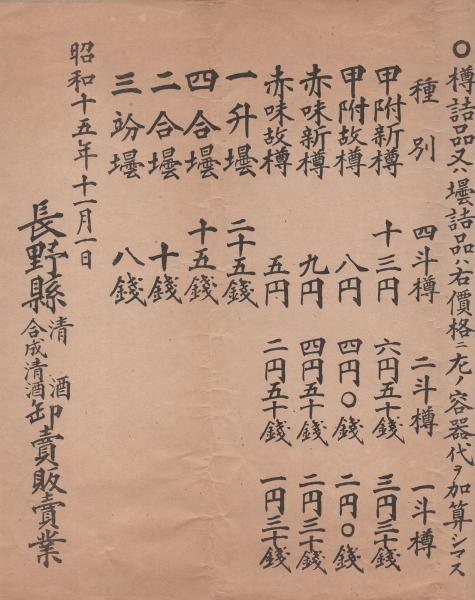 〇樽詰品又ハ壜詰品ハ右價格ニ左ノ容器代ヲ加算シマス
種別 四斗樽 二斗樽 一斗樽
甲附新樽 十三円 六円五十錢 三円三十錢
甲附故樽 八円 四円〇錢 二円〇錢
赤味新樽 九円 四円五十錢 二円三十錢
赤味故樽 五円 二円五十錢 一円三十錢
一升壜 二十五錢
四合壜 十五錢
二合壜 十錢
三竕壜 八錢
昭和十五年十一月一日
長野縣 清酒 合成清酒 卸賣販賣業